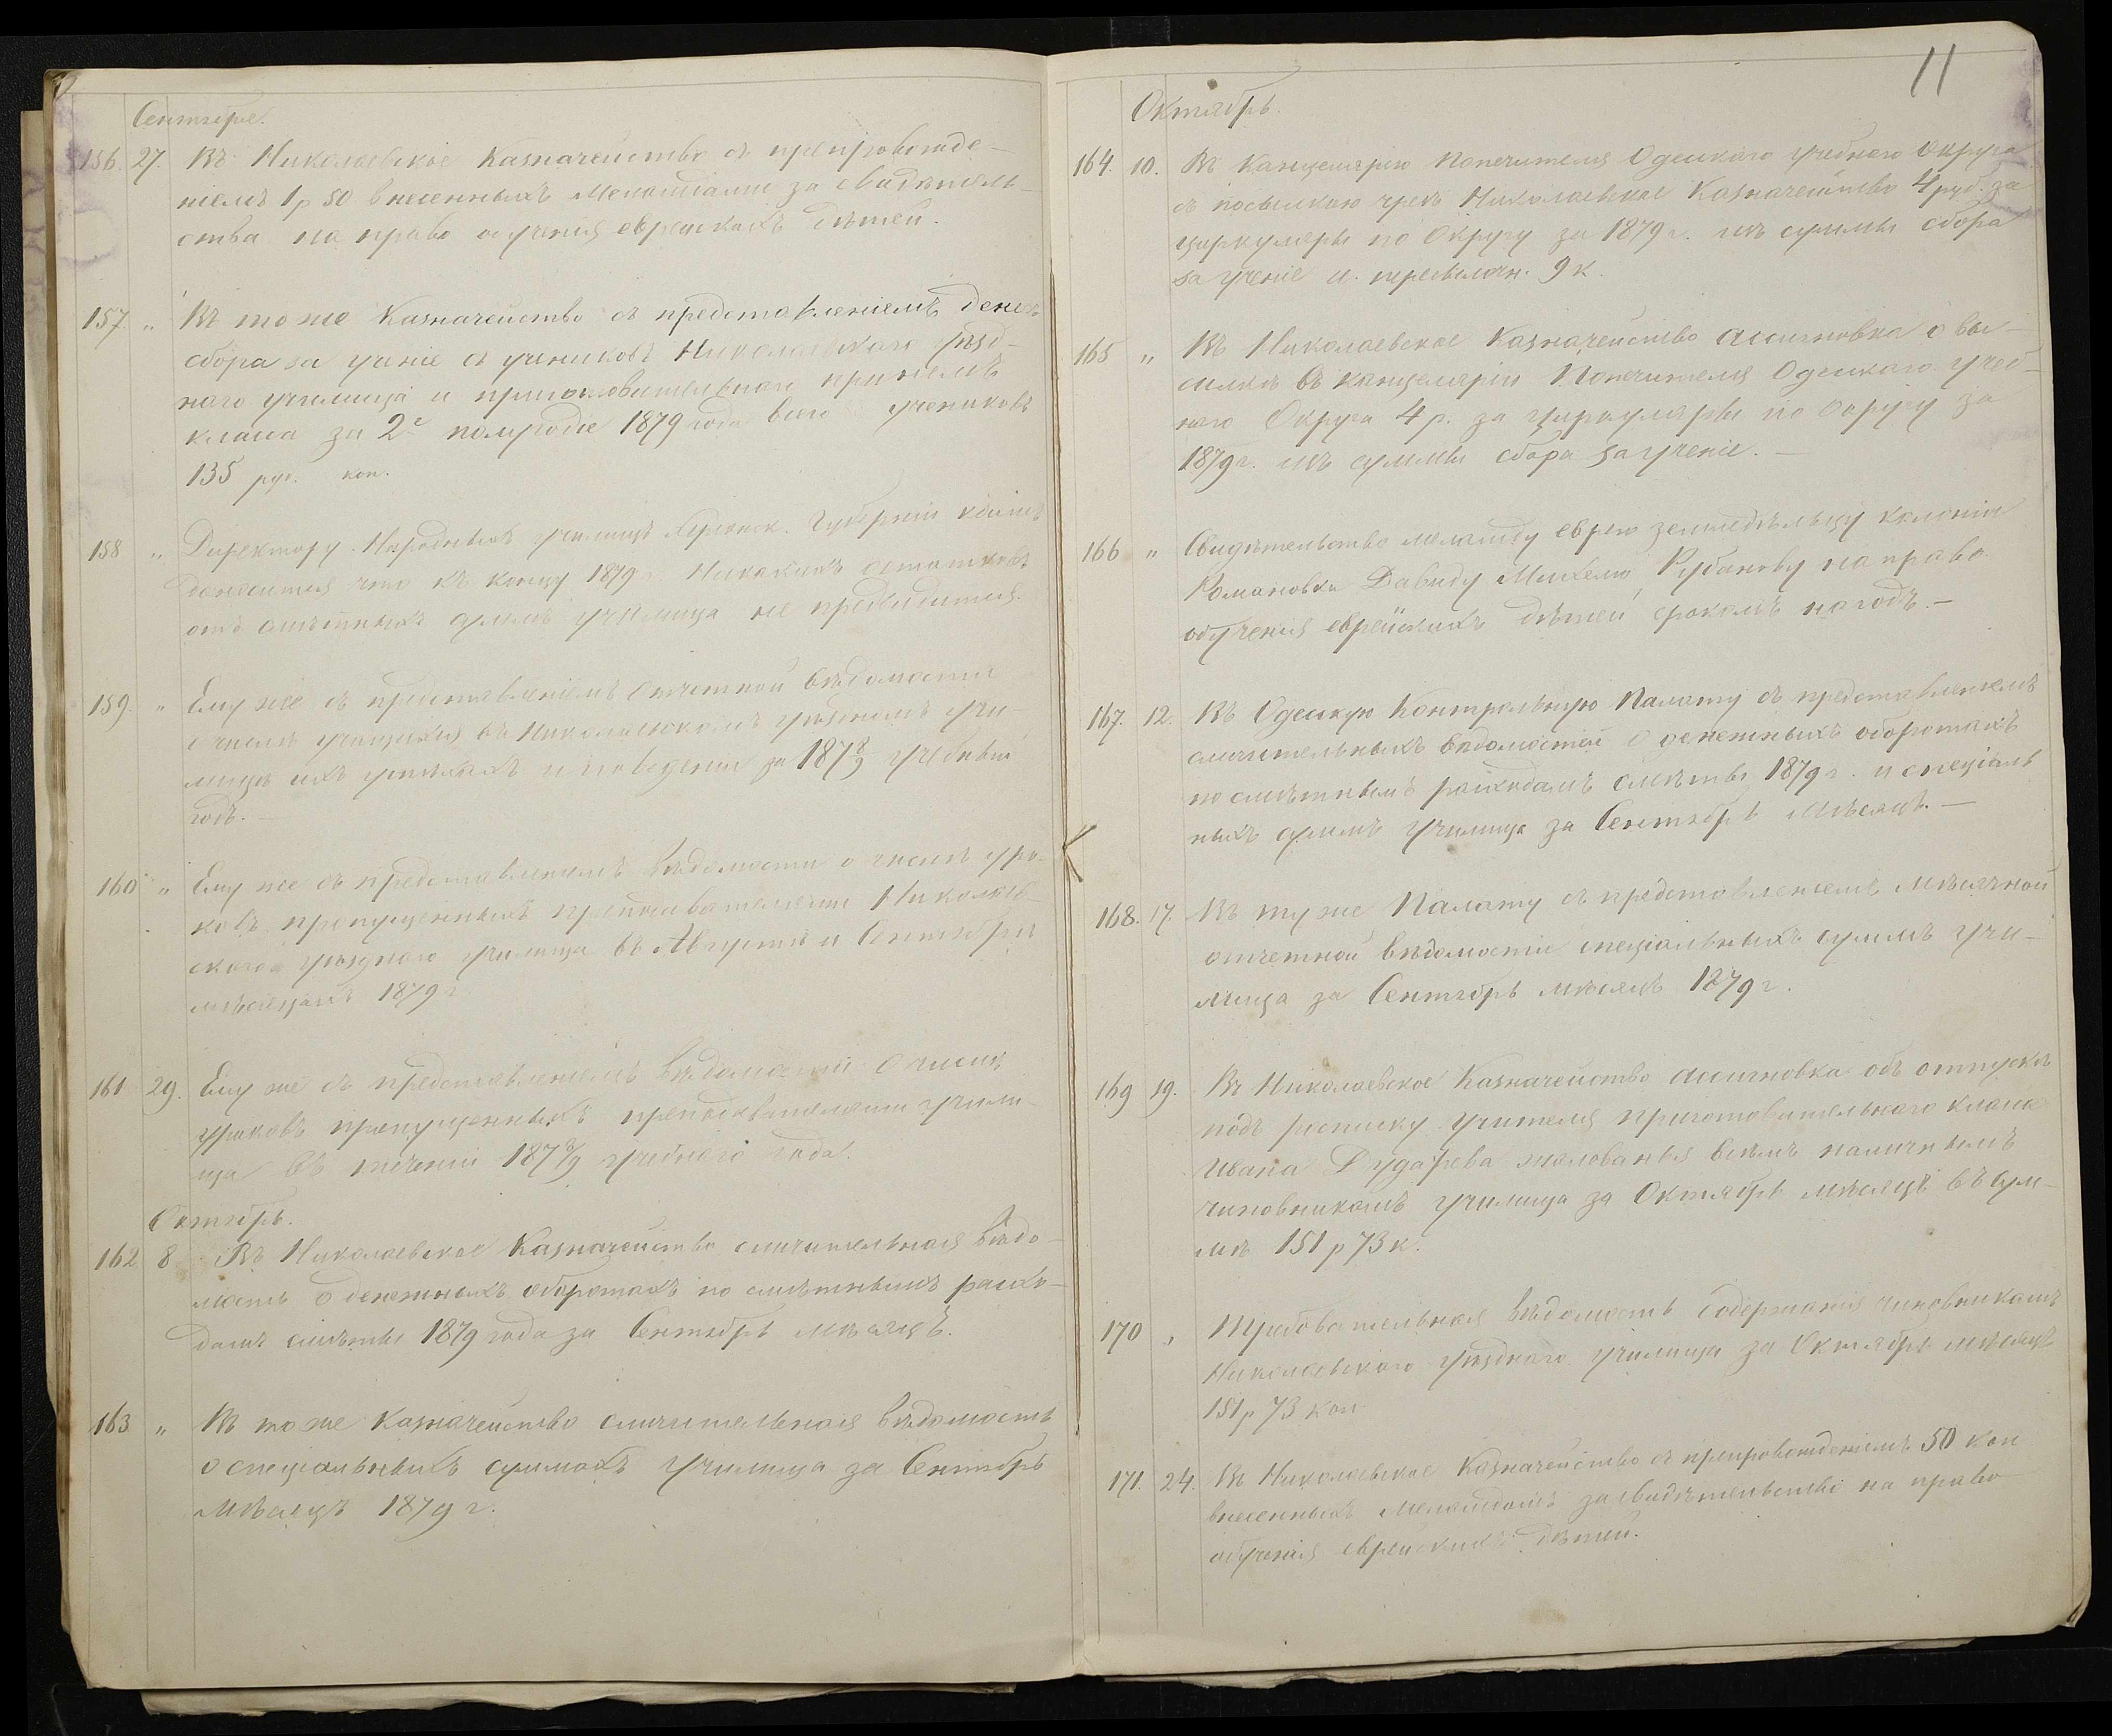 Сентябрь.
156. 27. Въ Николаевское Казначейство съ препровожде-
ніемъ 1 р 50 внесенныхъ Меламдами за свидѣтель-
ства на право обученія еврейскихъ дѣтей.
157 " Въ тоже Казначейство съ представленіемъ денегъ
сбора за ученіе съ учениковъ Николаевскаго Уѣзд-
наго училища и приготовительнаго при немъ
класса за 2е полугодіе 1879 года всего учениковъ
135 руб. коп.
158 " Директору Народныхъ училищъ Херсонск. Губерніи
доносится что къ концу 1879 г. Никакихъ остатковъ
отъ смѣтныхъ суммъ училища не предвидится.
159. " Ему же съ представленіемъ отчетной вѣдомости
о числѣ учащихся въ Николаевскомъ уѣздномъ учи-
лищѣ ихъ успѣхахъ и поведеніи за 187 8/9 учебный
годъ. —
160 " Ему же съ представленіемъ вѣдомости о числѣ уро-
ковъ пропущенныхъ преподавателями Николаев-
скаго уѣзднаго училища въ Августѣ и Сентябрѣ
мѣсяцахъ 1879 г.
161 29. Ему же съ представленіемъ вѣдомости о числѣ
уроковъ пропущенныхъ преподавателями учили-
ща въ теченіи 187 8/9 учебнаго года.
Октябрь.
162 8 Въ Николаевское Казначейство сличительная вѣдо-
мость о денежныхъ оборотахъ по смѣтнымъ расхо-
дамъ смѣты 1879 года за Сентябрь мѣсяцъ.
163 " Въ тоже Казначейство сличительная вѣдомость
о спеціальныхъ суммахъ Училища за Сентябрь
Мѣсяцъ 1879 г.
11
Октябрь.
164. 10. Въ Канцелярію Попечителя Одесскаго Учебнаго Округа
съ посылкою чрезъ Николаевское Казначейство 4 руб. за
циркуляры по Округу за 1879 г. изъ суммы сбора
за ученіе и пересылочн. 9 к.
165 " Въ Николаевское Казначейство ассигновка о вы-
сылкѣ въ канцелярію Попечителя Одесскаго Учеб-
наго Округа 4 р. за циркуляры по Округу за
1879 г. изъ суммы сбора за ученіе. —
166 " Свидѣтельство меламду еврею земледѣльцу колоніи
Романовки Давиду Михелю Рубанову на право
обученія еврейскихъ дѣтей срокомъ на годъ. —
167. 12. Въ Одесскую Контрольную Палату съ представленіемъ
сличительныхъ вѣдомостей о денежныхъ оборотахъ
по смѣтнымъ расходамъ смѣты 1879 г. и спеціаль
ныхъ суммъ Училища за Сентябрь Мѣсяцъ. —
168. 17. Въ туже Палату съ представленіемъ мѣсячной
отчетной вѣдомости спеціальныхъ суммъ учи-
лища за Сентябрь мѣсяцъ 1879 г.
169 19. Въ Николаевское Казначейство ассигновка объ отпускѣ
подъ росписку учителя приготовительнаго класса
Ивана Дударева жалованья всѣмъ наличнымъ
чиновникамъ училища за Октябрь мѣсяцъ въ сум-
мѣ 151 р 73 к.
170 " Требовательная вѣдомость содержанія чиновникамъ
Николаевскаго уѣзднаго училища за Октябрь мѣсяцъ
151 р 73 коп
171. 24. Въ Николаевское Казначейство съ препровожденіемъ 50 коп
внесенныхъ меламдомъ за свидѣтельство на право
обученія еврейскихъ дѣтей.